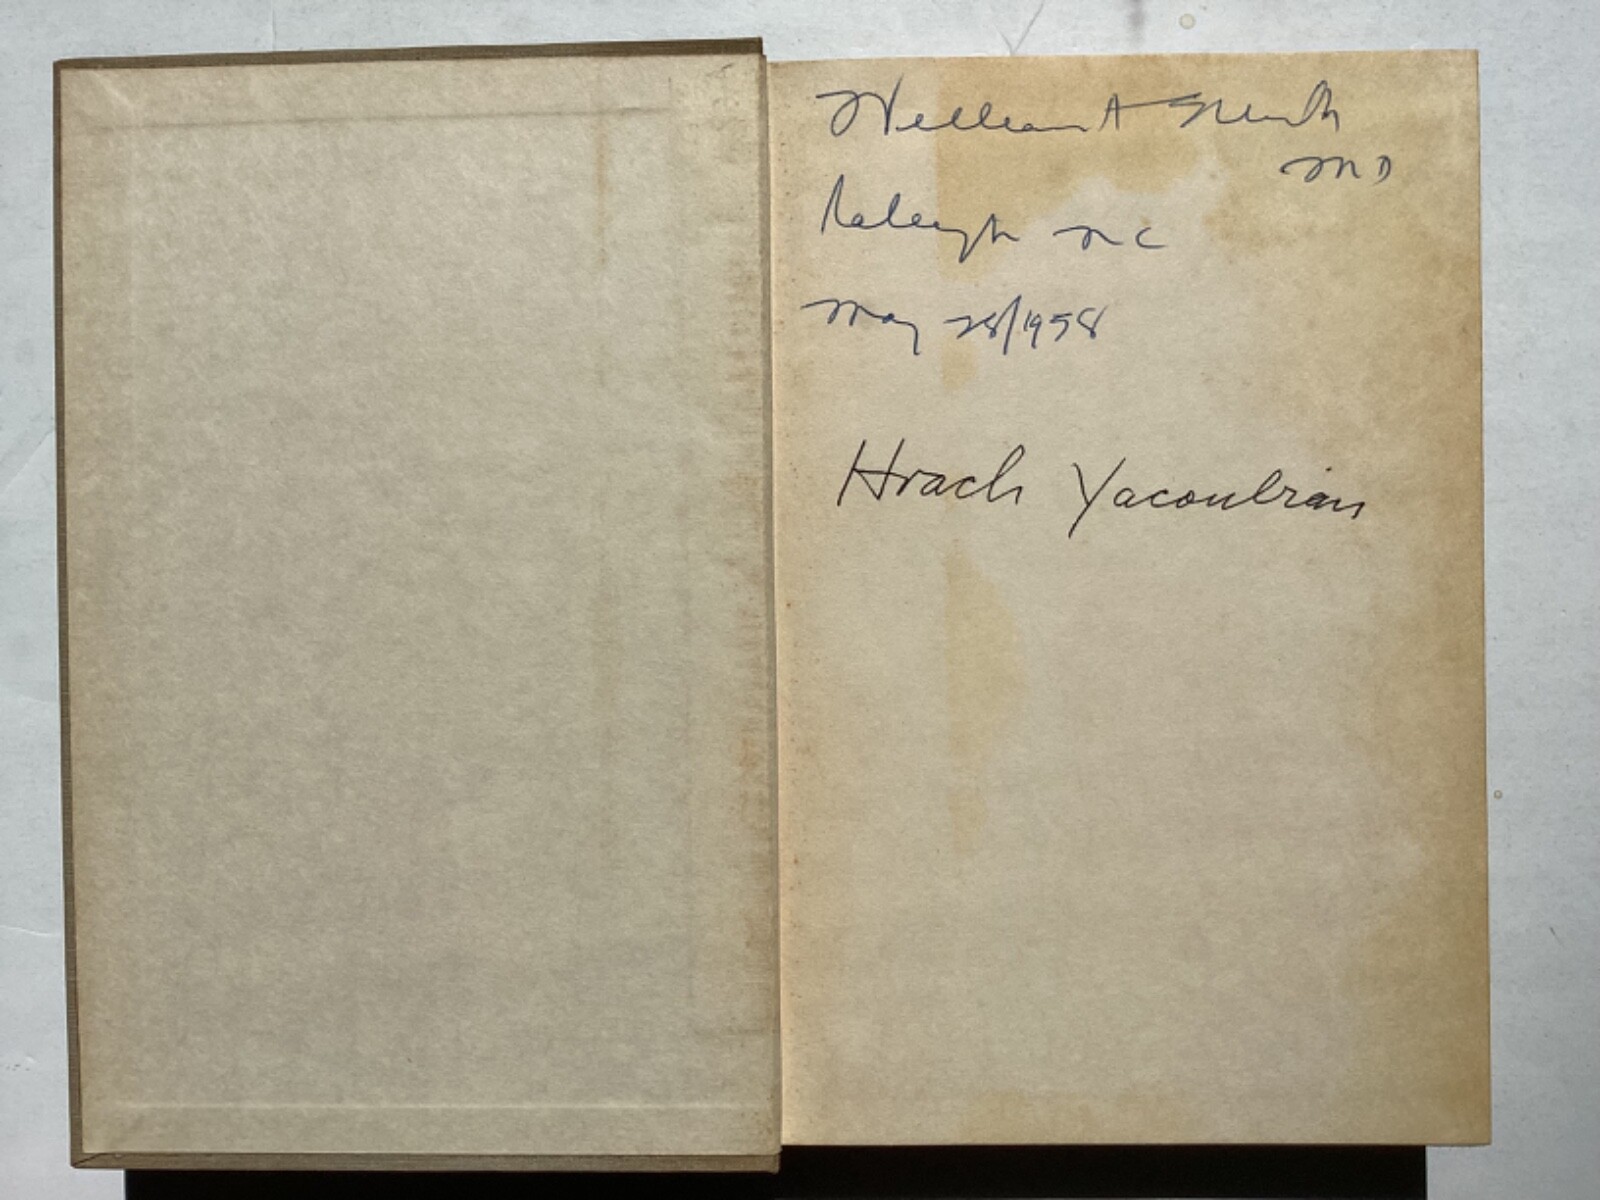 William A Smith
MD
Raleigh NC
May 28/1958
Hrach Yacoubian